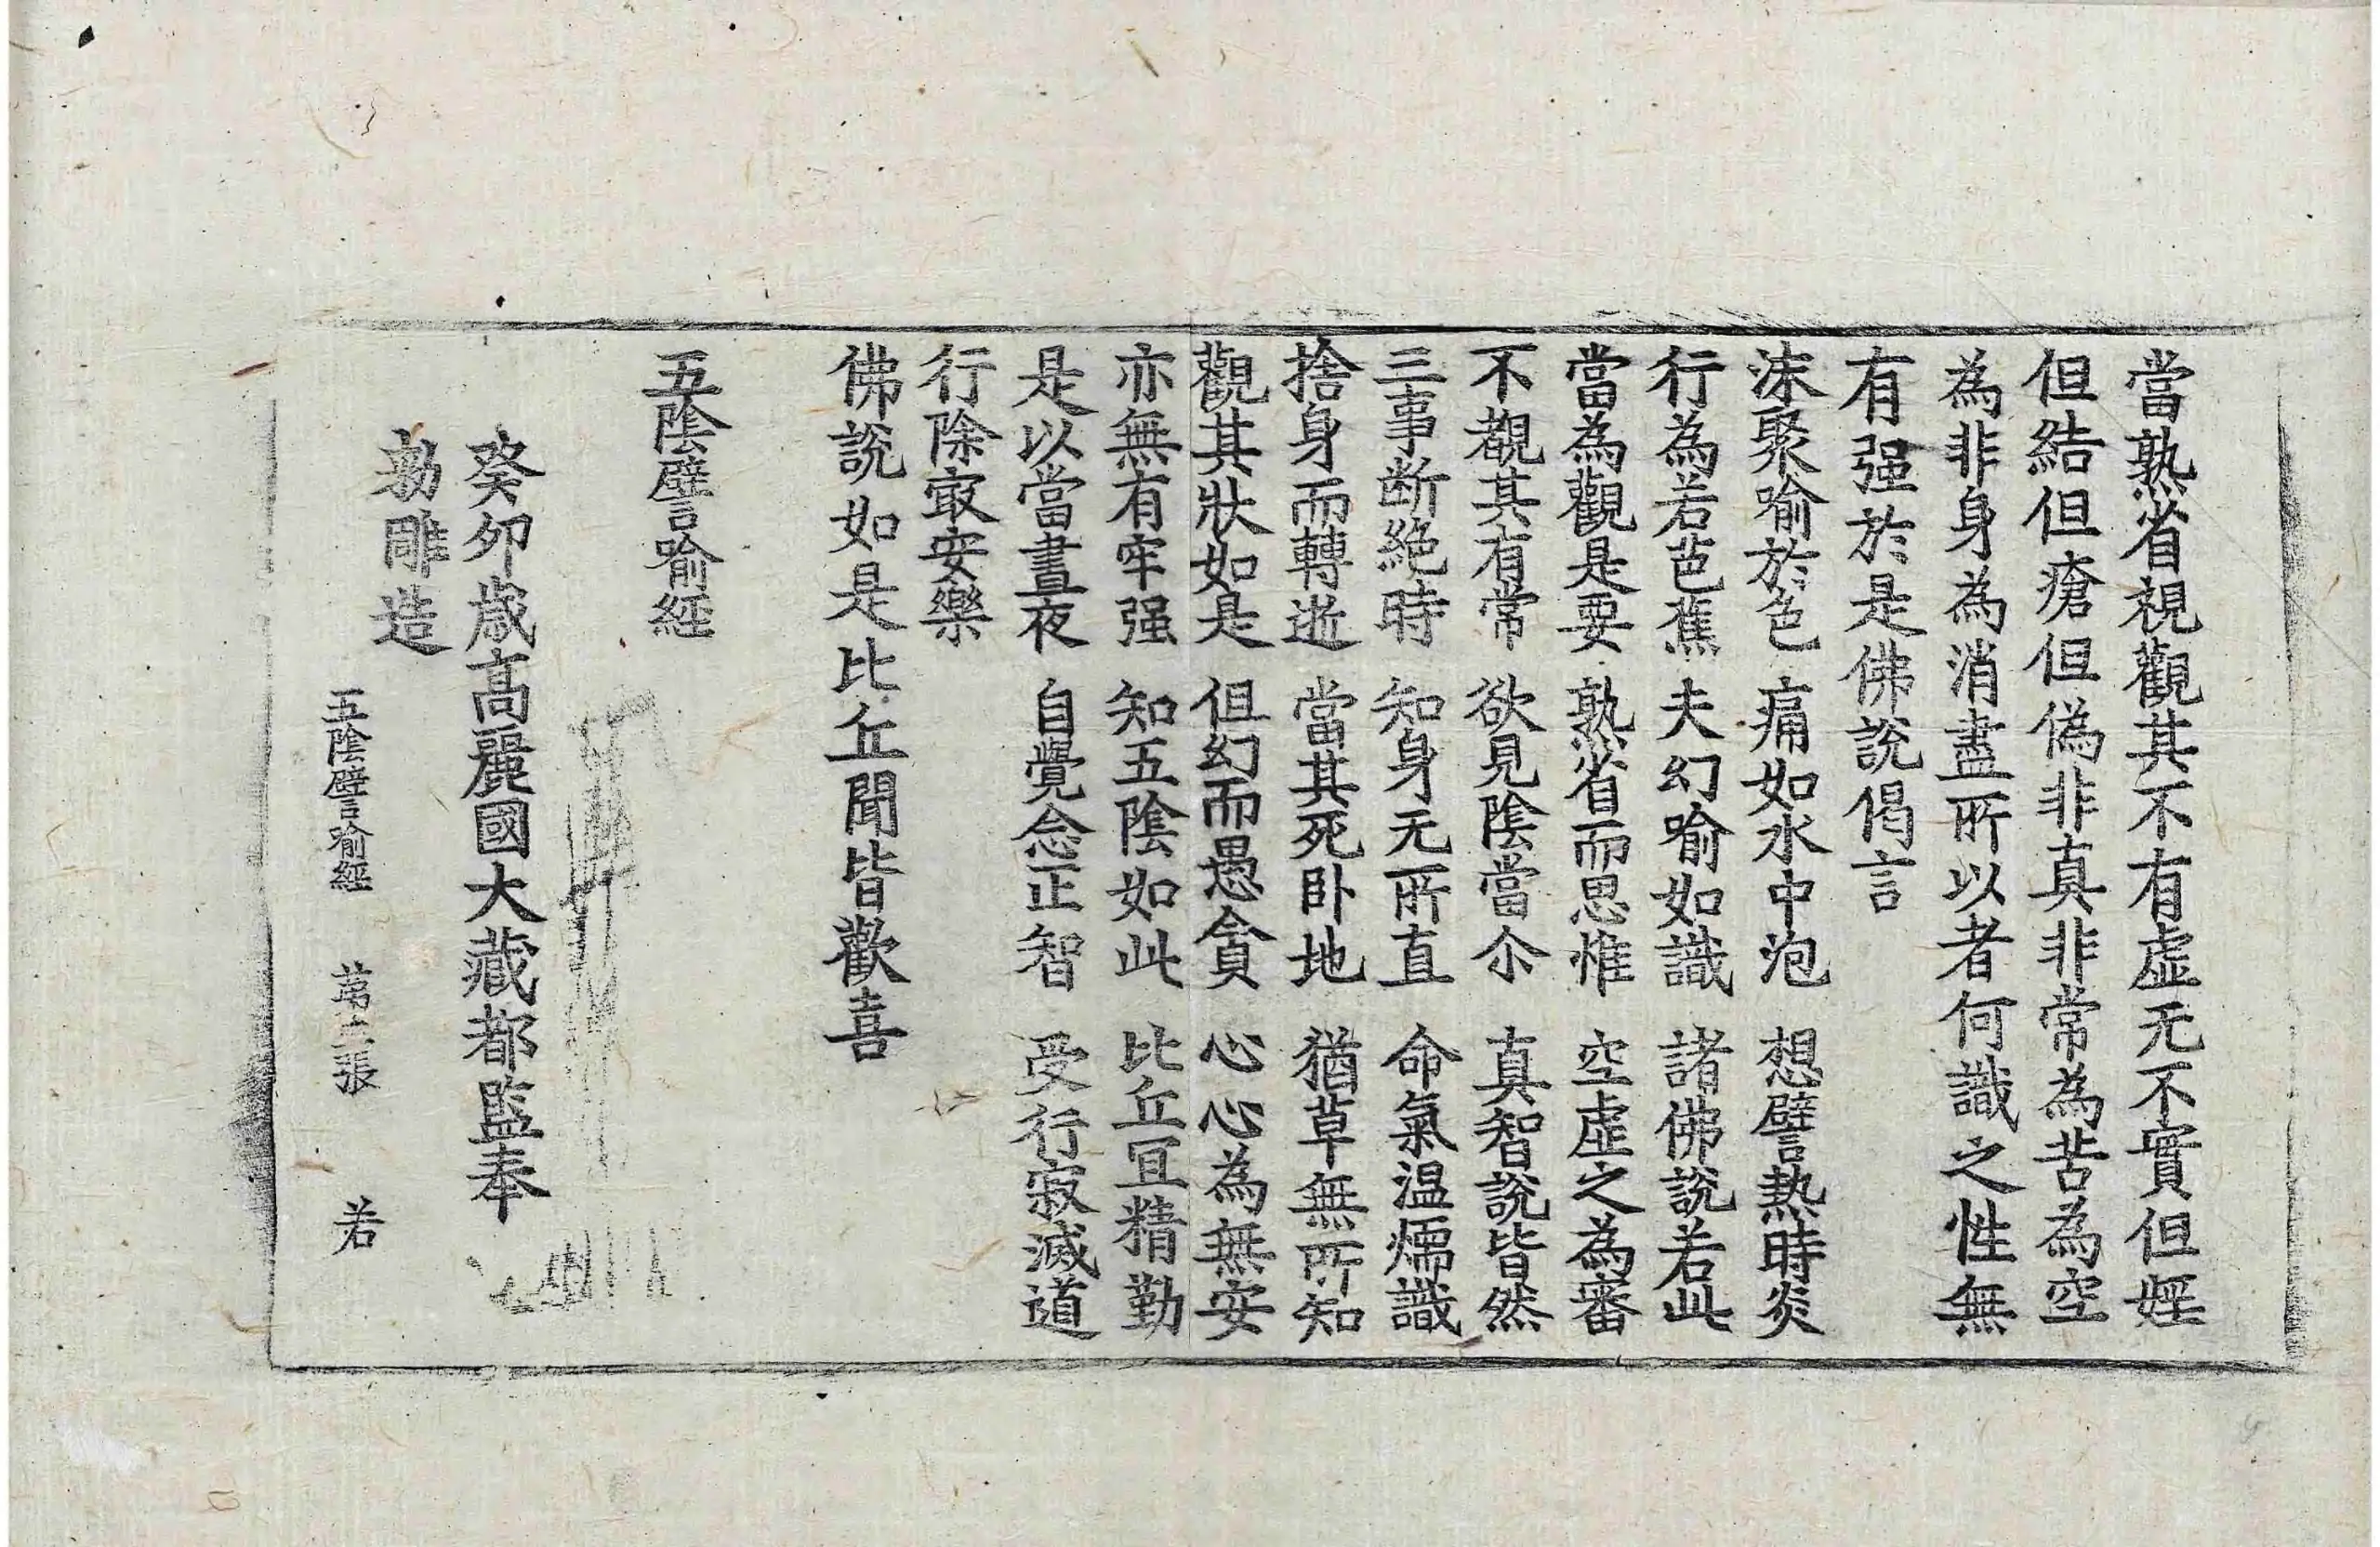 當熟省視觀其不有虛无不實但婬
但結但瘡但偽非真非常為苦為空
為非身為消盡所以者何識之性無
有强於是佛說偈言
沫聚喻於色 痛如水中泡 想譬熱時炎
行為若芭蕉 夫幻喻如識 諸佛說若此
當為觀是要 熟省而思惟 空虛之為審
不覩其有常 欲見陰當尒 真智說皆然
三事断絶時 知身无所直 命氣温煗識
捨身而轉逝 當其死卧地 猶草無所知
觀其狀如是 但幻而愚貪 心心為無安
亦無有牢强 知五陰如此 比丘冝精勤
是以當晝夜 自覺念正智 受行寂滅道
行除㝡安樂
佛說如是比丘聞皆歡喜
五陰譬喻經
癸卯歲高麗國大藏都監奉
勑雕造
五陰譬喻經 第三張 若